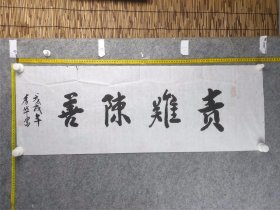 責難陳善
戊戌年
李